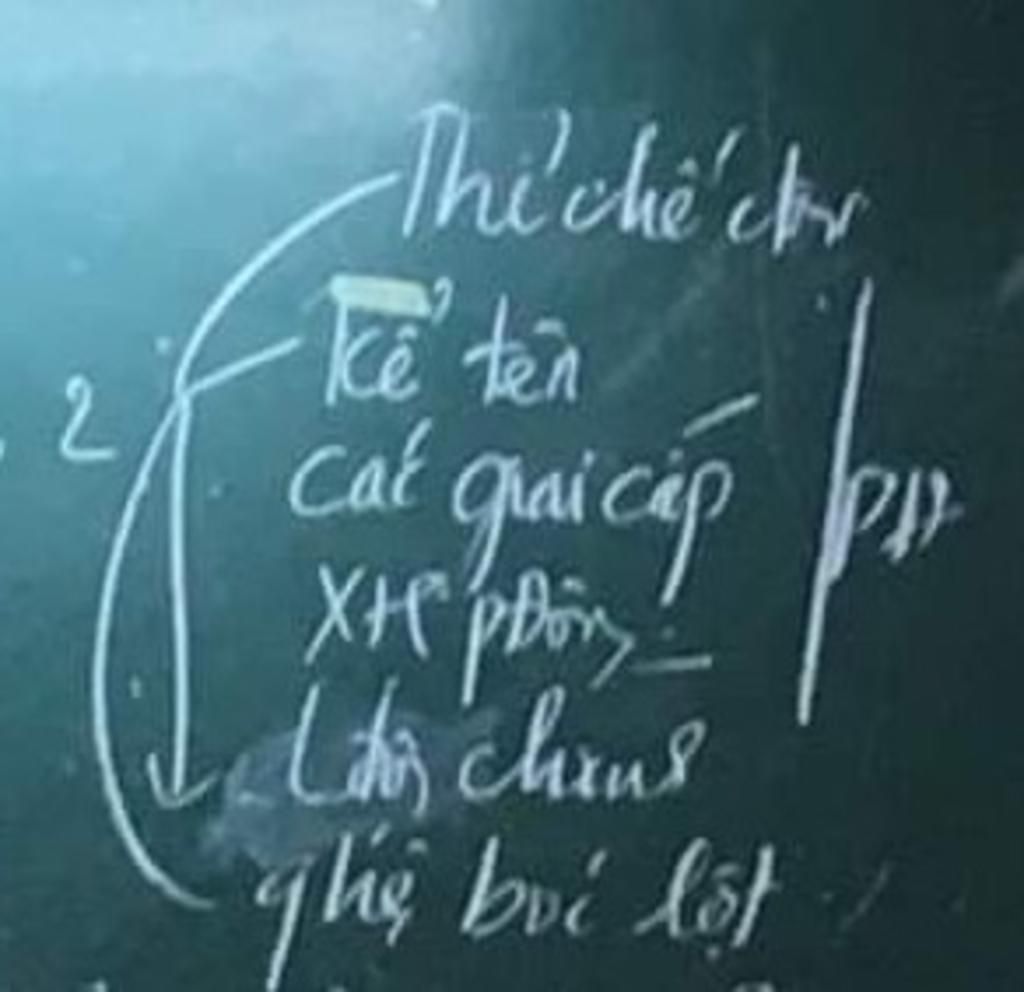 Thể chế ctrị
2 Kể tên
các giai cấp
XHP Đông
chung
qhệ bóc lột